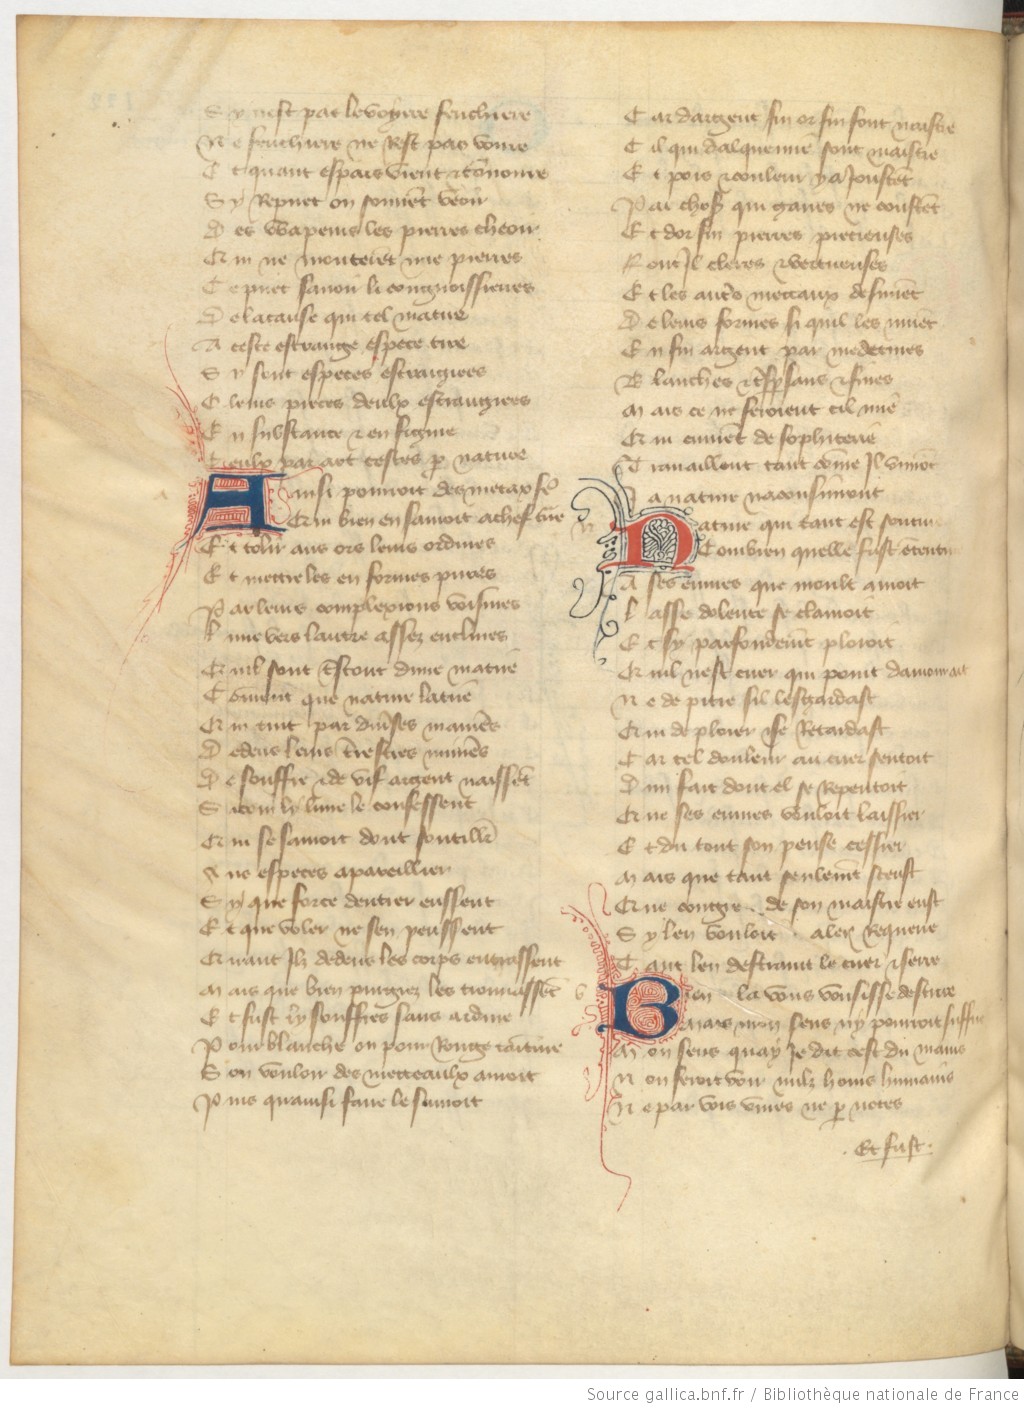 S y nest pas levoirre feuchiere
N e feuchiere ne Rest pas voire
E t quant espars vient et tonnoire
S y Repuet on souvent veoir
D es vvapeurs les pierres cheoir
Qui ne monterent mie pierres
C e puet savoir li congnoissierres
D e la cause qui tel matire
A ceste estrange espece tire
S y sont especes estrangiees
O leurs pieces deulx estrangiees
E n substance et en figure
C eulx par art cestes par nature
A insi pouroit des metaux
Qui bien en savoit a chef
E t tolir aus ors leurs ordures
E t mettre les en formes pures
P ar leurs complexions voisines
L une vers lautre assez enclines
Quil sont trestout dune matire
C omment que nature la tire
Qui tuit par diverses manieres
D edens leurs terrestres minieres
D e souffre et de vif argent naissent
S i com ly livre le confessent
Qui se savoit dont soutillier
A ux especes apareillier
S y que force dentrer eussent
E t que voler ne sen peussent
Quant Ilz dedens les corps entrassent
M ais que bien purgiez les trouvassent
E t fust ly souffres sans ardure
P our blanche ou pour Rouge tainture
S on vouloir des metteaulx avroit
P uis quainsi faire le savroit
C ar dargent fin or fin font naistre
C il qui dalquemie sont maistre
E t pois et couleur y adjoustent
P ar choses qui gaires ne coustent
E t dor fin pierres precieuses
F ont Il cleres et vertueuses
E t les autres mettaux desnuent
D e leurs formes si quil les muent
E n fin argent par medecines
B lanches et tresp̃sans et fines
M ais ce ne feroient cil mie
Qui euvrent de sophiterie
T ravaillent tant comme Il vivront
J a nature naconsuivront
N ature qui tant est soutive
Combien quelle fust ententive
A ses euvres que moult amoit
L asse dolente se clamoit
E t sy parfondement plouroit
Quil nest cuer qui point damour ait
N e de pitie sil lesgardast
Qui de plorer se Retardast
C ar tel douleur au cuer sentoit
D un fait dont el se Repentoit
Que ses euvres vouloit laissier
E t du tout son pense cessier
M ais que tant seulement sceust
Que congie de son maistre eust
S y len vouloit aler Requerre
T ant len destraint le cuer et serre
B ien la vous vousisse descrire
Mais mon sens ny pourroit suffire
M on sens quay Je dit cest du mains
N on feroit voir nulz homs humains
N e par vois vives ne par notes
Et fust
Source gallica.bnf.fr / Bibliothèque nationale de France